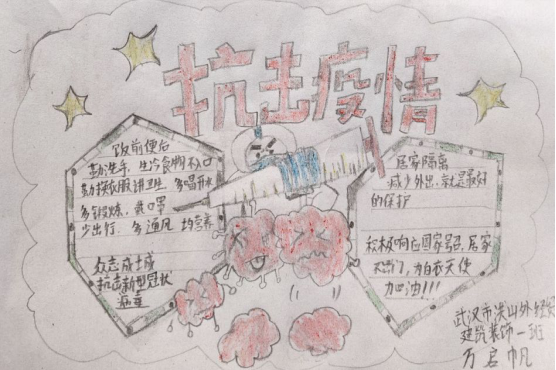 抗击疫情
饭前便后
勤洗手,生冷食物
勤换衣服讲卫生 多喝开水
多锻炼,戴口罩
少出行,多通风
众志成城
抗击新型冠状
病毒
居家隔离
减少外出,就是最好
的保护
积极响应国家号召,居家
不出门,为白衣天使
加油!!!
武汉市洪山外经
建筑装饰一班
万启帆